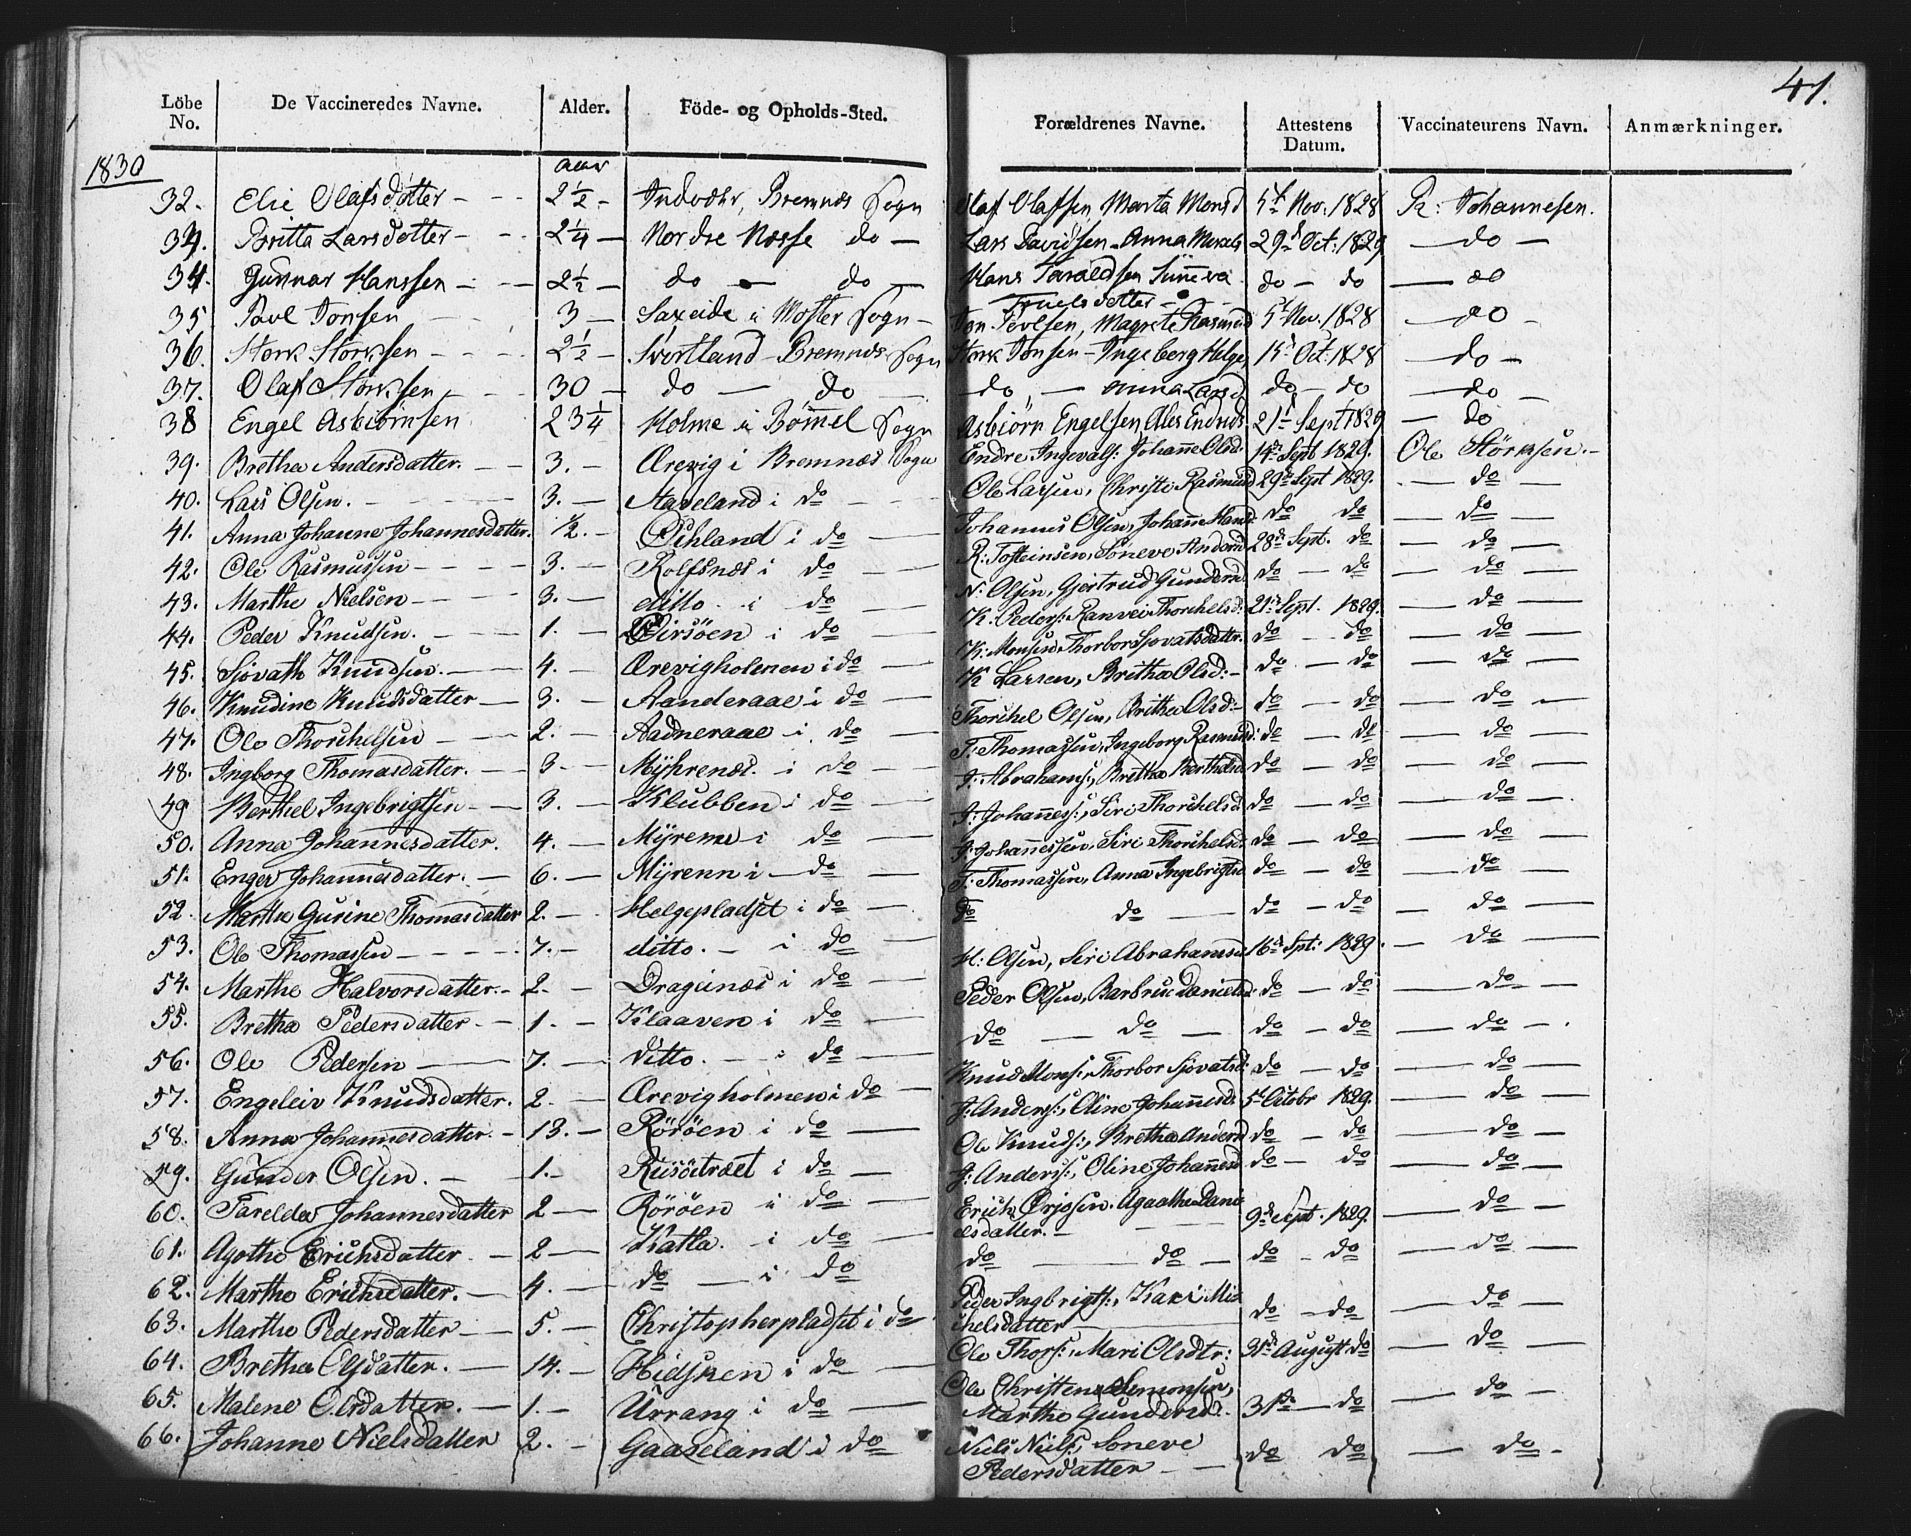 41.
Löbe No. De Vaccineredes Navne. Alder. Föde- og Opholds-Sted. Forældrenes Navne. Attestens Datum. Vaccinateurens Navn. Anmærkninger.
1830
Aar
32. Elie Olafsdotter - - - 2½ - Indvær, Bremnes Sogn Olaf Olafsen Marta Monsd 5t Nov: 1828 R: Johannesen.
33. Britta Larsdotter - - 2¼ - Nordre Næsse do - Lars Davidsen - Anna 29d Oct: 1829 - do -
34. Gunnar Hanssen - - - 2½ - do - do - Hans Taraldsen Sünneva Truelsdotter - do - do - do
35 Povl Jonsen - - 3 - Saxeide i Moster Sogn - Jon Povlsen, Magrete Rasmusd 5t Nov. 1828 - do -
36. Stork Storksen - - - 2½ - Svortland - Bremnes Sogn Stork Jonsen - Ingeborg Helge 15d Oct: 1828 - do -
37. Olaf Storksen - - 30 - do - do - do - Anna Larsd do - do - do
38 Engel Asbiörnsen 2 3¼ Holme i Bömmel Sogn Asbiörn Engelsen, Ales Endreds 21d Sept 1829 - do
39. Bretha Andersdatter. - - 3. - Ærevig i Bremnæs Sogn Endre Ingevals: Johanne Olsd. 14de Sept 1829. Ole Störksen. -
40. Lars Olsen. - - 3. - Staveland i do - - Ole Larsen, Christi Rasmusd 29de Sept 1829. - do -
41. Anna Johanne Johannesdatter. ½. - Öihland i do - Johannes Olsen, Johanne Hansd do do - do -
42. Ole Rasmussen - - - 3. - Rolfsnæs i do - - R: Tosteinsen, Söneve Andersd 28de Sept. do - do -
43. Marthe Nielsen - - 3. - ditto - i do - N: Olsen, Gjertrud Gundersd. do - do - do -
44. Peder Knudsen. - - 1. - Öirsöen i do - K: Peders: Ranvei Thorchelsd: 21de Sept. 1829. - do -
45. Sjovath Knudsen. - - 4. - Ærevigholmen i do - K: Monsen, Thorbor Sjovatsdatter. do - do - do -
46. Knudine Knudsdatter - 3. - Aanderaae i do - K Larsen, Britha Olsd: - do - do - do -
47. Ole Thorchelsen - - 2. - Aadneraae i do - Thorchel Olsen, Britha Olsd: - do - do - do -
48. Ingborg Thomasdatter. - 3 - Mÿhrenæs. i do - T: Thomassen, Ingeborg Rasmusd: do - do - do -
49 Berthel Ingebrigtsen - - 3. - Klubben i do - J: Abrahams:, Bretha Berthelsd do - do - do -
50. Anna Johannesdatter. 4. - Mÿrene i do - J: Johannes:, Siri Thorchelsd do - do - do -
51. Enger Johannesdatter. - 6. - Mÿrenn i - do - J: Johannessen, Siri Thorchelsd. do - do - do -
52. Martha Gurine Thomasdatter 2. - Helgepladset i do - T: Thomassen, Anna Ingebrigtsd do - do - do -
53. Ole Thomassen - - - 7. - ditto. - i do - do do - do - do - do -
54. Marthe Halvorsdatter. - 2. - Dragenæs i do - H: Olsen, Siri Abrahamsd 16de Spt: 1829. - do -
55. Bretha Pedersdatter - - 1. - Klaaven i do - Peder Olsen, Barbru Danielsd: do - do - do -
56. Ole Pedersen - 7. - ditto. - i do - do do - do - do - do -
57. Engeleiv Knudsdatter. 2. - Ærevigholmen i do - Knud Mons: Thorbor Sjovatsd: do - do - do -
58. Anna Johannesdatter. - 13. - Röröen i do - J: Anders:, Oline Johannesd. 5te Octobr 1829. - do -
59. Gunder Olsen. - 1. - Rusötræet i do - Ole Knuds:, Bretha Andersd do - do - do -
60. Tarelda Johannesdatter 2 - Röröen i do - J: Anders:, Oline Johannesd do - do - do -
61. Agothe Erichsdatter - 2 - Katla. - i do - Erich Örjosen. Agaathe Danielsdatter. - 9de Sept. 1829. - do -
62. Marthe Erichsdatter. - 4. - do - i do do - do - do - do - do -
63. Marthe Pedersdatter - 5. - Christopherpladset i do Peder Ingbrigts:, Kari Michelsdatter - do - do - do -
64. Bretha Olsdatter. - 14. - Hidsken i do - Ole Thors: Mari Olsdtr: 31de August do - do -
65. Malene Olsdatter. - 1. - Urrang i do - Ole Christen Semonsen, Marthe Gundersdr. 31de - do - do -
66. Johanne Nielsdatter 2. - Gaaseland i do Niels Niels:, Soneve Pedersdatter - - do do - do -